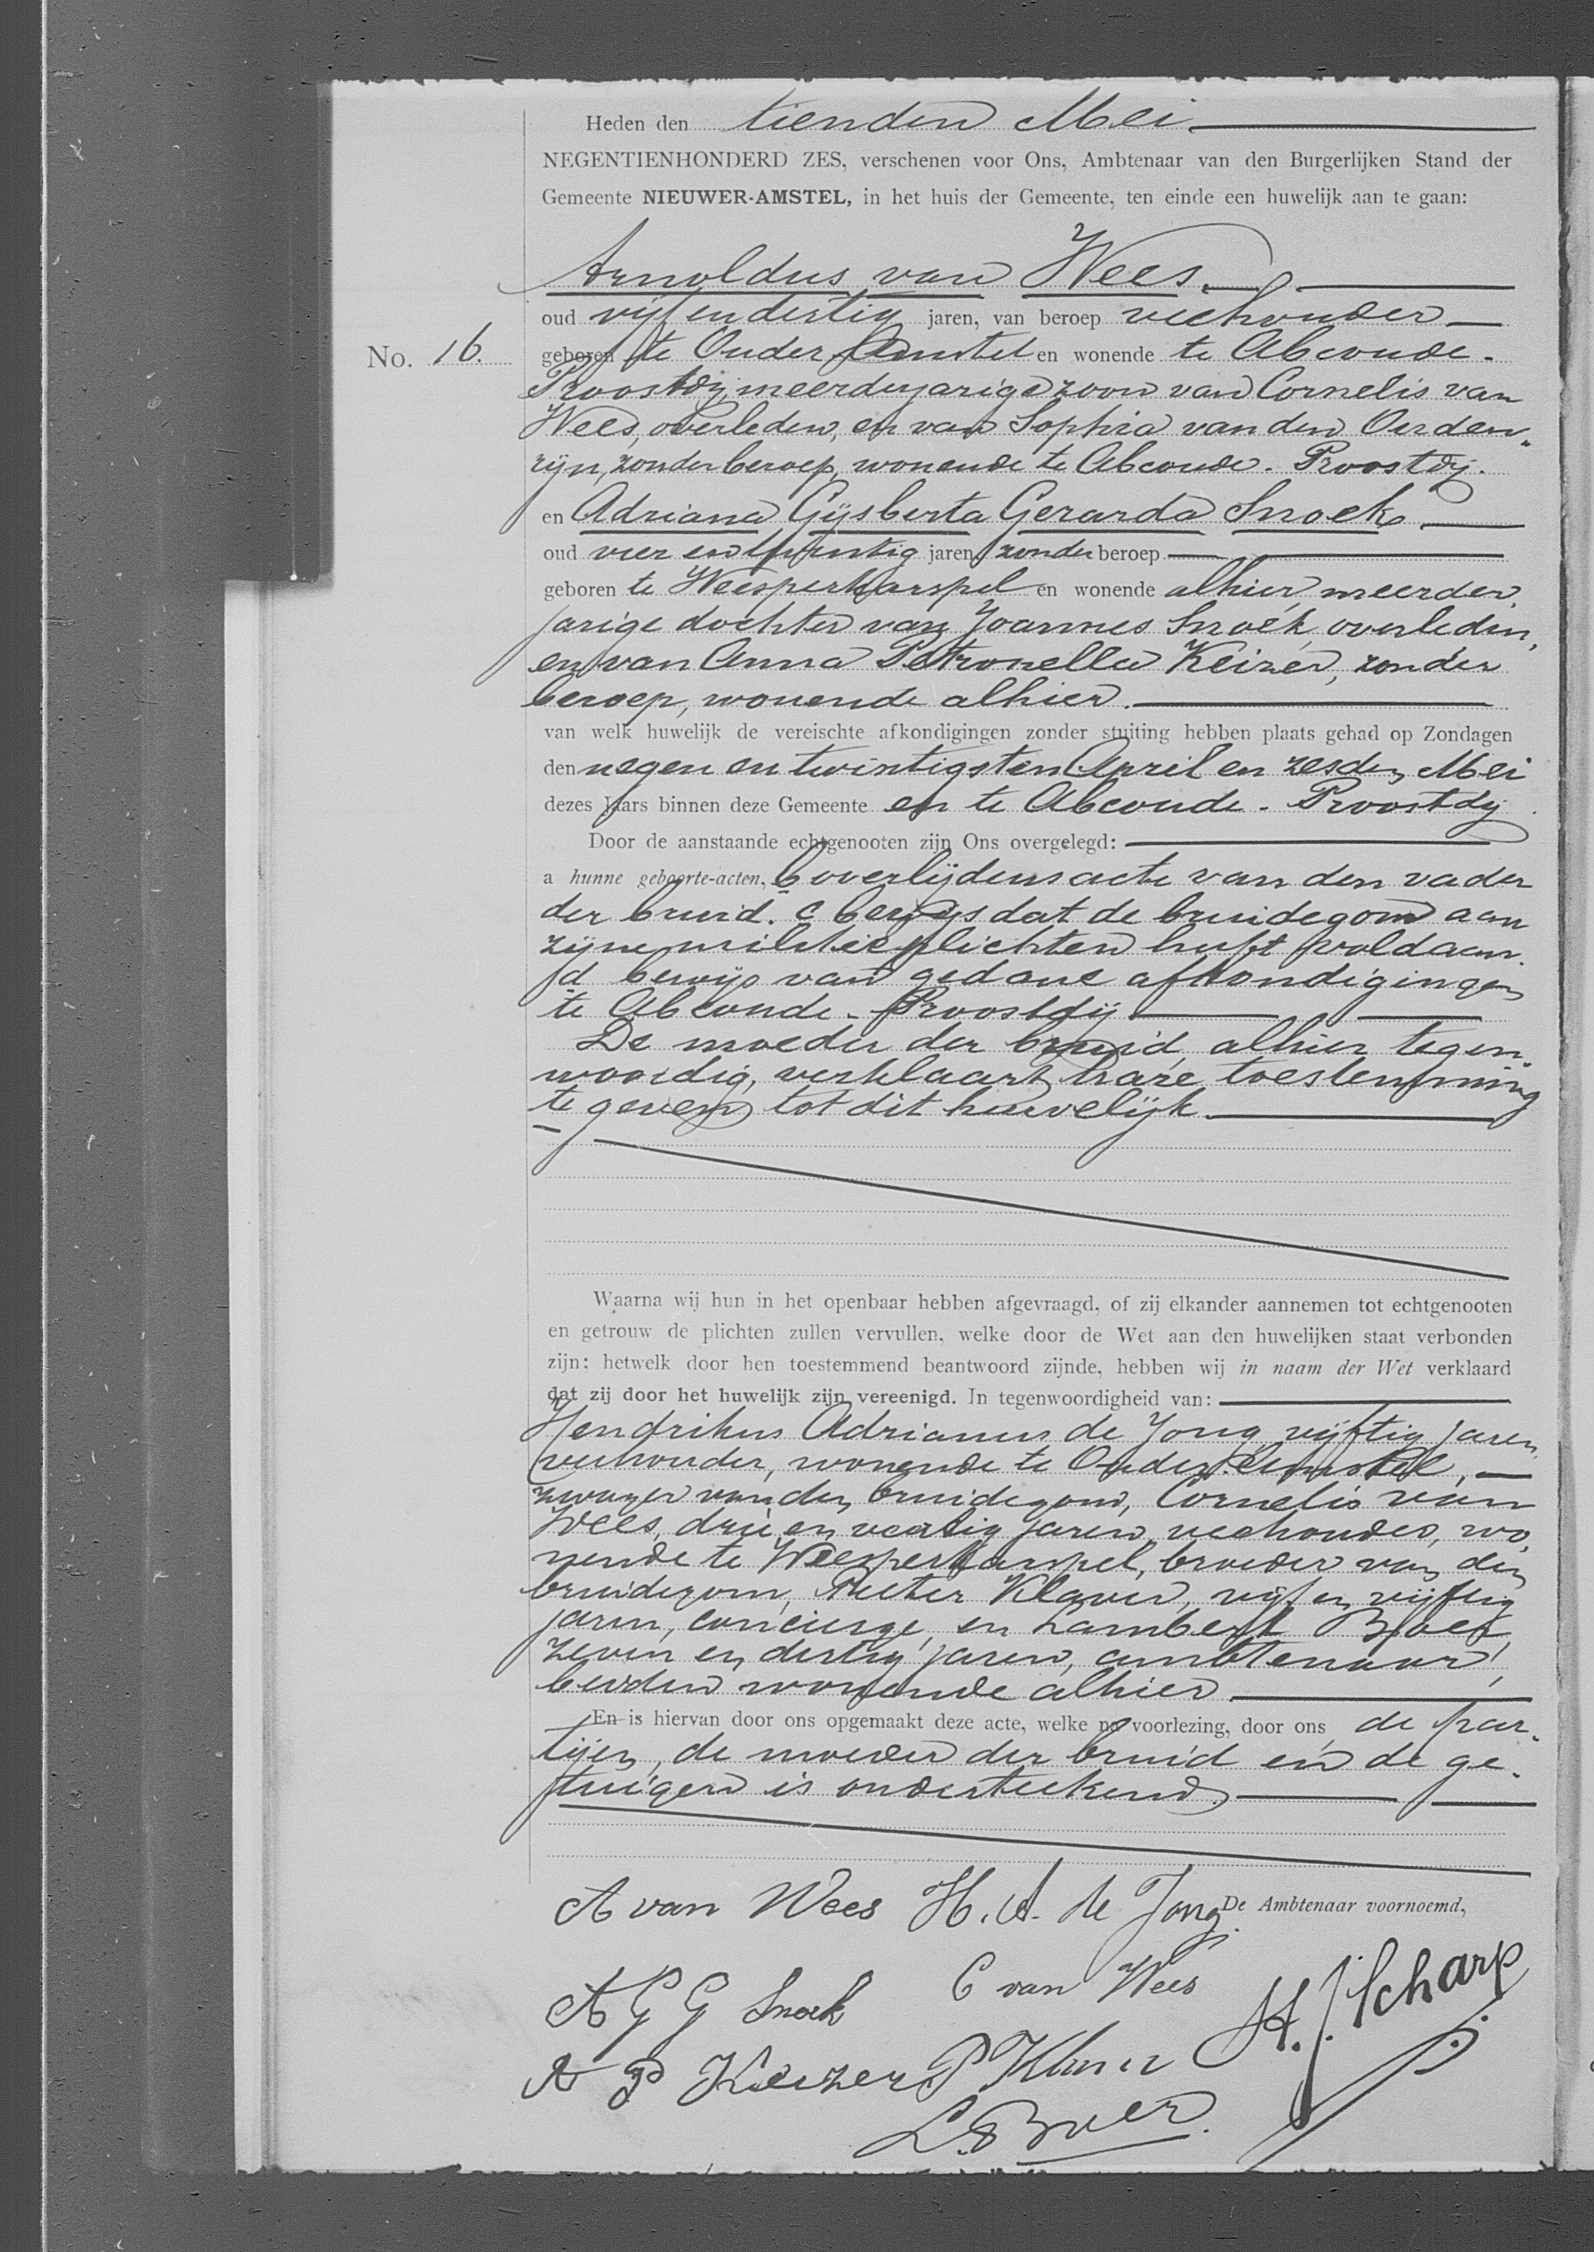 Heden den tienden Mei
NEGENTIENHONDERD ZES, verschenen voor Ons, Ambtenaar van den Burgerlijken Stand der
Gemeente NIEUWER-AMSTEL, in het huis der Gemeente, ten einde een huwelijk aan te gaan:
Arnoldus van Wees
oud vijf en dertig jaren, van beroep veehouder
No. 16.
geboren te Ouder Amstel en wonende te Abcoude-
Proostdij, meerderjarige zoon van Cornelis van
Wees, overleden, en van Sophia van den Ouden-
rijn, zonder beroep, wonende te Abcoude-Proostdij.
en Adriana Gijsberta Gerarda Snoek
oud vier en twintig jaren, zonder beroep
geboren te Weesperkarspel en wonende alhier, meerder-
jarige dochter van Joannes Snoek, overleden,
en van Anna Petronella Keizer, zonder
beroep, wonende alhier.
van welk huwelijk de vereischte afkondigingen zonder stuiting hebben plaats gehad op Zondagen
den negen en twintigsten April en zesden Mei
dezes jaars binnen deze Gemeente en te Abcoude-Proostdij
Door de aanstaande echtgenooten zijn Ons overgelegd:
a hunne geboorte-acten, b overlijdensacte van den vader
der bruid. c bewijs dat de bruidegom aan
zijne militieplichten heeft voldaan.
d bewijs van gedane afkondigingen
te Abcoude-Proostdij
De moeder der bruid, alhier tegen-
woordig, verklaart hare toestemming
te geven tot dit huwelijk.
Waarna wij hun in het openbaar hebben afgevraagd, of zij elkander aannemen tot echtgenooten
en getrouw de plichten zullen vervullen, welke door de Wet aan den huwelijken staat verbonden
zijn: hetwelk door hen toestemmend beantwoord zijnde, hebben wij in naam der Wet verklaard
dat zij door het huwelijk zijn vereenigd. In tegenwoordigheid van:
Hendrikus Adrianus de Jong, vijftig jaren,
veehouder, wonende te Ouder-Amstel,
zwager van den bruidegom, Cornelis van
Wees, drie en veertig jaren, veehouder, wo-
nende te Weesperkarspel, broeder van den
bruidegom, Pieter Klaver, vijf en vijftig
jaren, concierge, en Lambert Boer,
zeven en dertig jaren, ambtenaar,
beiden wonende alhier
En is hiervan door ons opgemaakt deze acte, welke na voorlezing, door ons, de par-
tijen, de moeder der bruid en de ge-
tuigen is onderteekend
A van Wees H. A. de Jong De Ambtenaar voornoemd,
A G G Snoek C van Wees H. J. Scharp
A P Keizer P Klaver
L. Boer.